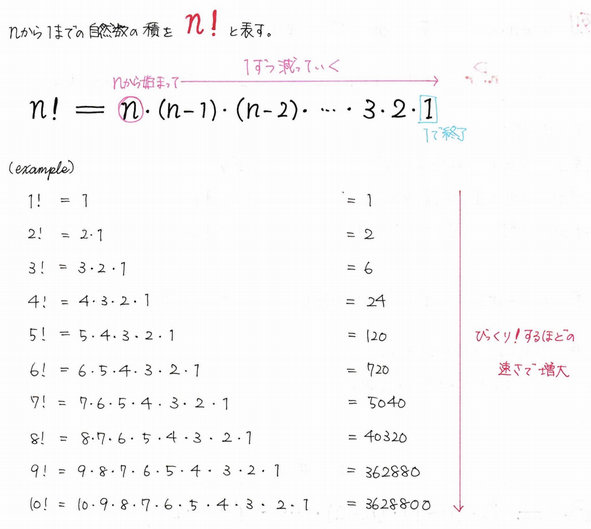 nから1までの自然数の積を n! と表す。
1ずつ減っていく
nから始まって
n! = n・(n-1)・(n-2)・…・3・2・1
1で終了
(example)
1! = 1 = 1
2! = 2・1 = 2
3! = 3・2・1 = 6
4! = 4・3・2・1 = 24
5! = 5・4・3・2・1 = 120
6! = 6・5・4・3・2・1 = 720
7! = 7・6・5・4・3・2・1 = 5040
8! = 8・7・6・5・4・3・2・1 = 40320
9! = 9・8・7・6・5・4・3・2・1 = 362880
10! = 10・9・8・7・6・5・4・3・2・1 = 3628800
びっくり!するほどの
速さで増大